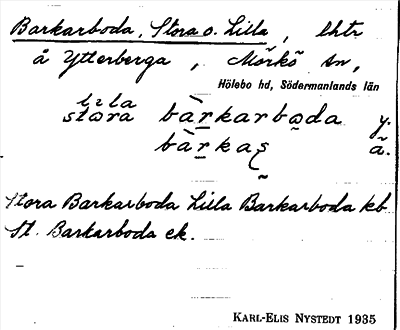 Barkarboda, Stora o. Lilla, lhtr
å Ytterberga, Mörkö sn,
Hölebo hd, Södermanlands län
lila
stora bàrkarboda y.
bàrkas ä.
Stora Barkarboda Lilla Barkarboda kb
St. Barkarboda ek.
KARL-ELIS NYSTEDT 1935